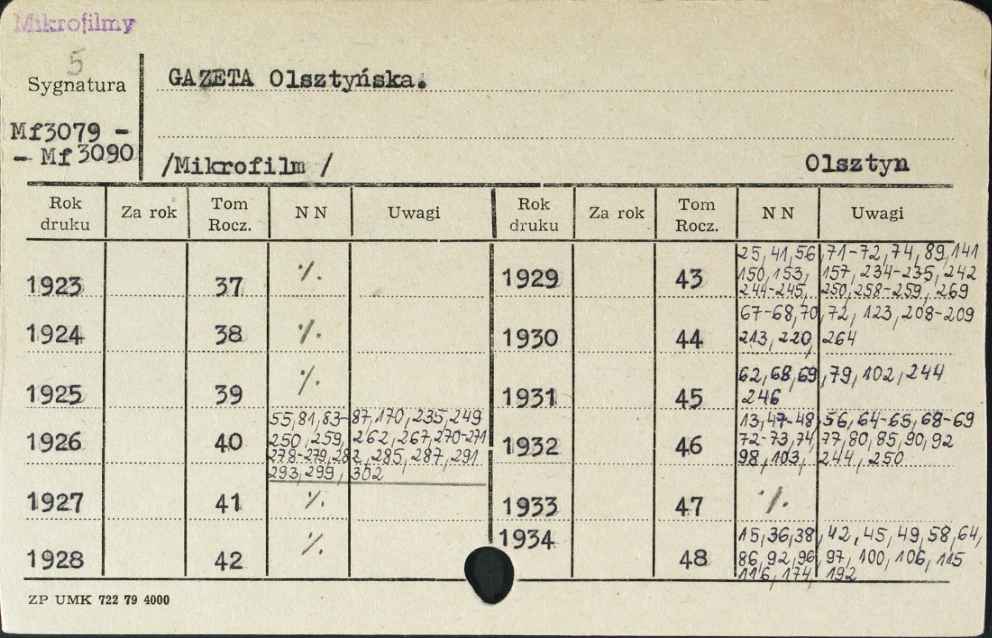 Mikrofilmy
5
Sygnatura
GAZETA Olsztyńska.
Mf3079 -
- Mf 3090
/Mikrofilm /
Olsztyn
Rok druku Za rok Tom Rocz. NN Uwagi Rok druku Za rok Tom Rocz. NN Uwagi
1923 37 ·/.
1924 38 ·/.
1925 39 ·/.
1926 40 55,81,83-87,170,235,249
250,259,262,267,270-271
278-279,282,285,287,291
293,299,302
1927 41 ·/.
1928 42 ·/.
1929 43 25,41,56,71-72,74,89,141
150,153,157,234-235,242
244-245,250,258-259,269
1930 44 67-68,70,72,123,208-209
213,220,264
1931 45 62,68,69,79,102,244
246
1932 46 13,47-48,56,64-65,68-69
72-73,74,77,80,85,90,92
98,103,244,250
1933 47 ·/.
1934 48 15,36,38,42,45,49,58,64,
86,92,96,97,100,106,115
116,174,192
ZP UMK 722 79 4000